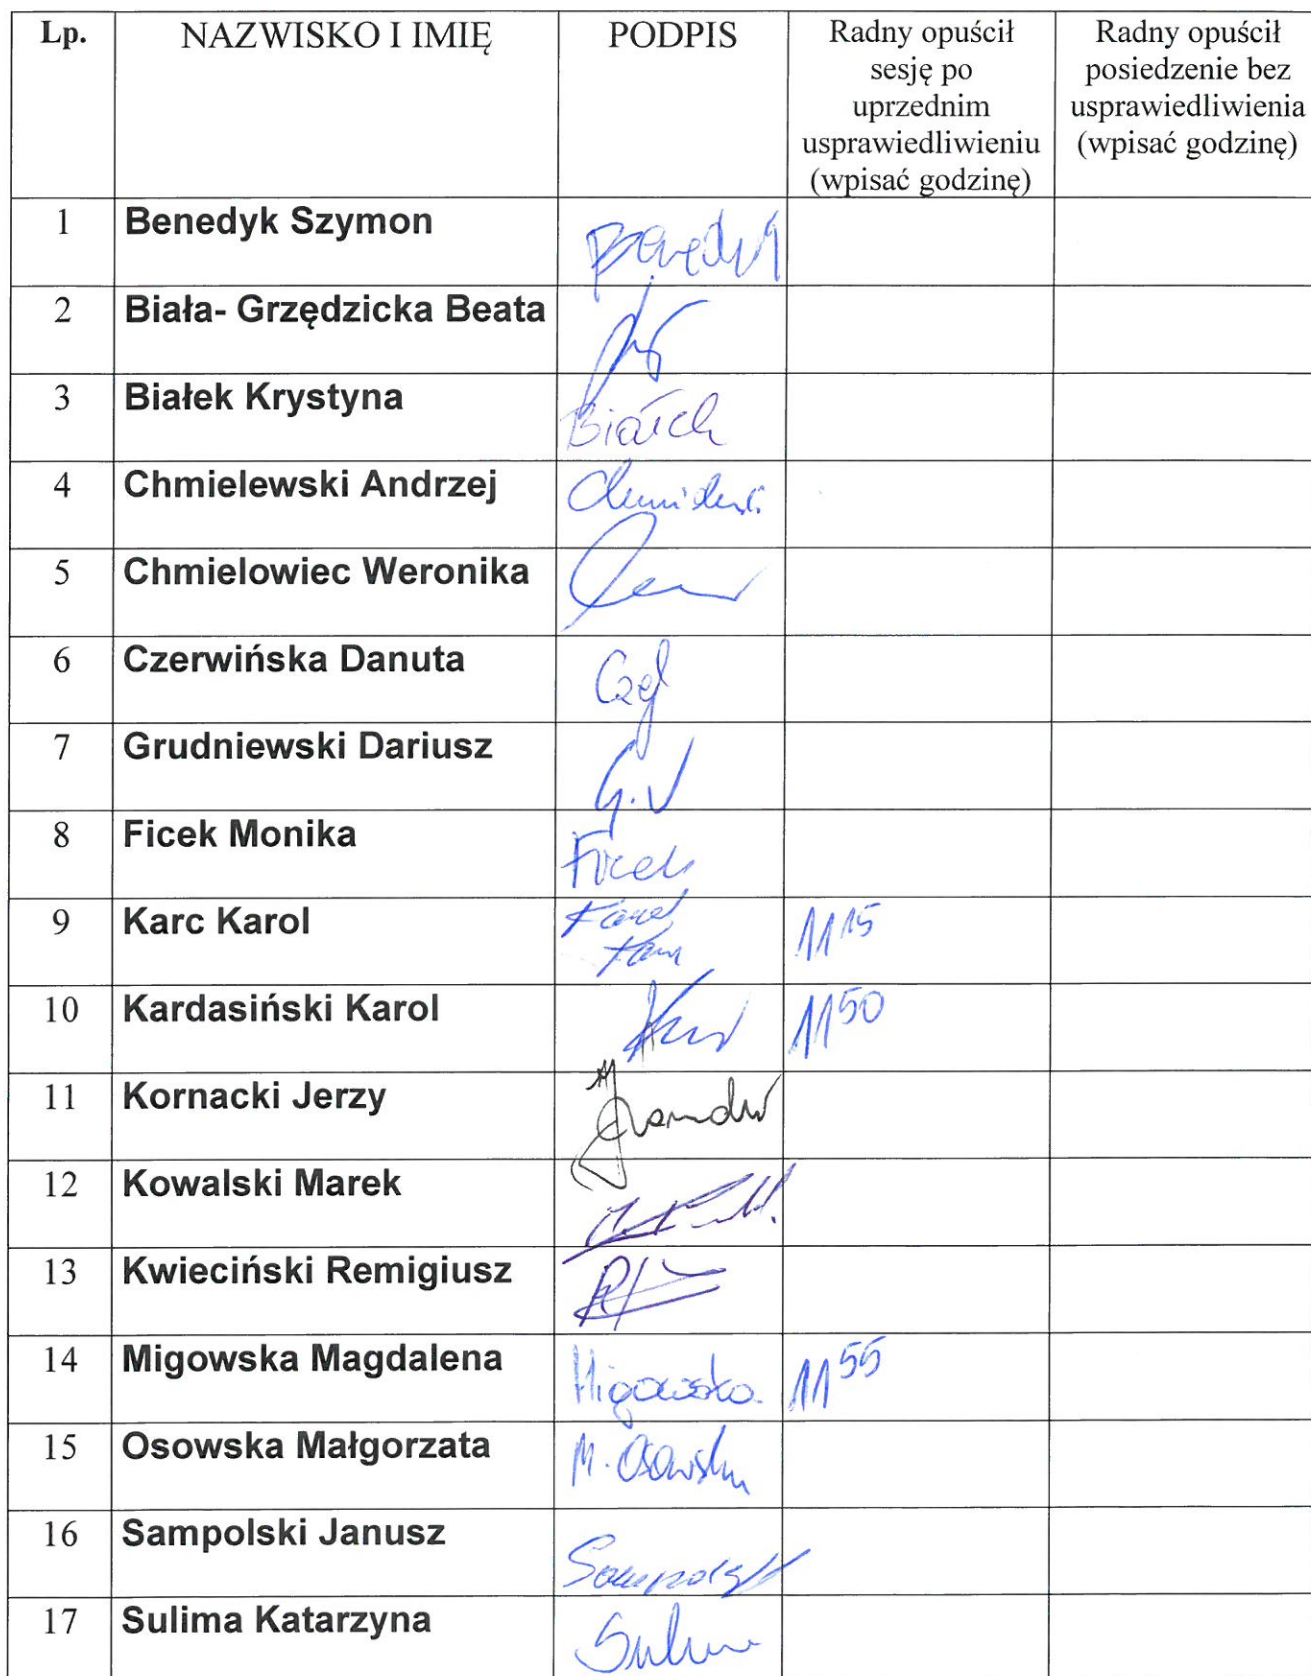 Lp. NAZWISKO I IMIĘ PODPIS Radny opuścił Radny opuścił
sesję po posiedzenie bez
uprzednim usprawiedliwienia
usprawiedliwieniu (wpisać godzinę)
(wpisać godzinę)
1 Benedyk Szymon Benedyk
2 Biała- Grzędzicka Beata
3 Białek Krystyna Białek
4 Chmielewski Andrzej
5 Chmielowiec Weronika
6 Czerwińska Danuta
7 Grudniewski Dariusz
8 Ficek Monika Ficek
9 Karc Karol Karol 11 15
10 Kardasiński Karol 11 50
11 Kornacki Jerzy
12 Kowalski Marek
13 Kwieciński Remigiusz
14 Migowska Magdalena Migowska 11 55
15 Osowska Małgorzata M. Osowska
16 Sampolski Janusz
17 Sulima Katarzyna